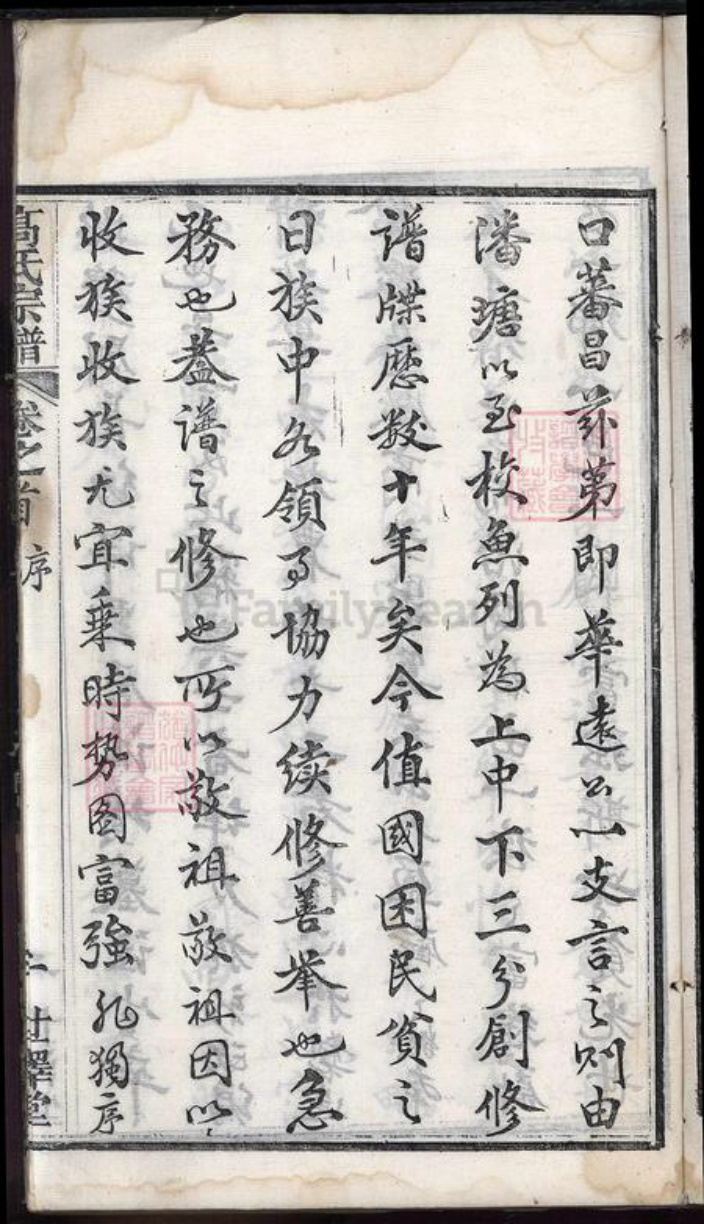 口蕃昌茲第即華遠公一支言之则由
潘塘以至校魚列為上中下三分創修
譜牒歷数十年矣今值國困民貧之
日族中各領事協力续修善举也急
務也蓋譜之修也所以敬祖敬祖因以
收族收族尤宜乗時势图富強非獨序
髙氏宗譜 卷之首 序
FamilySearch